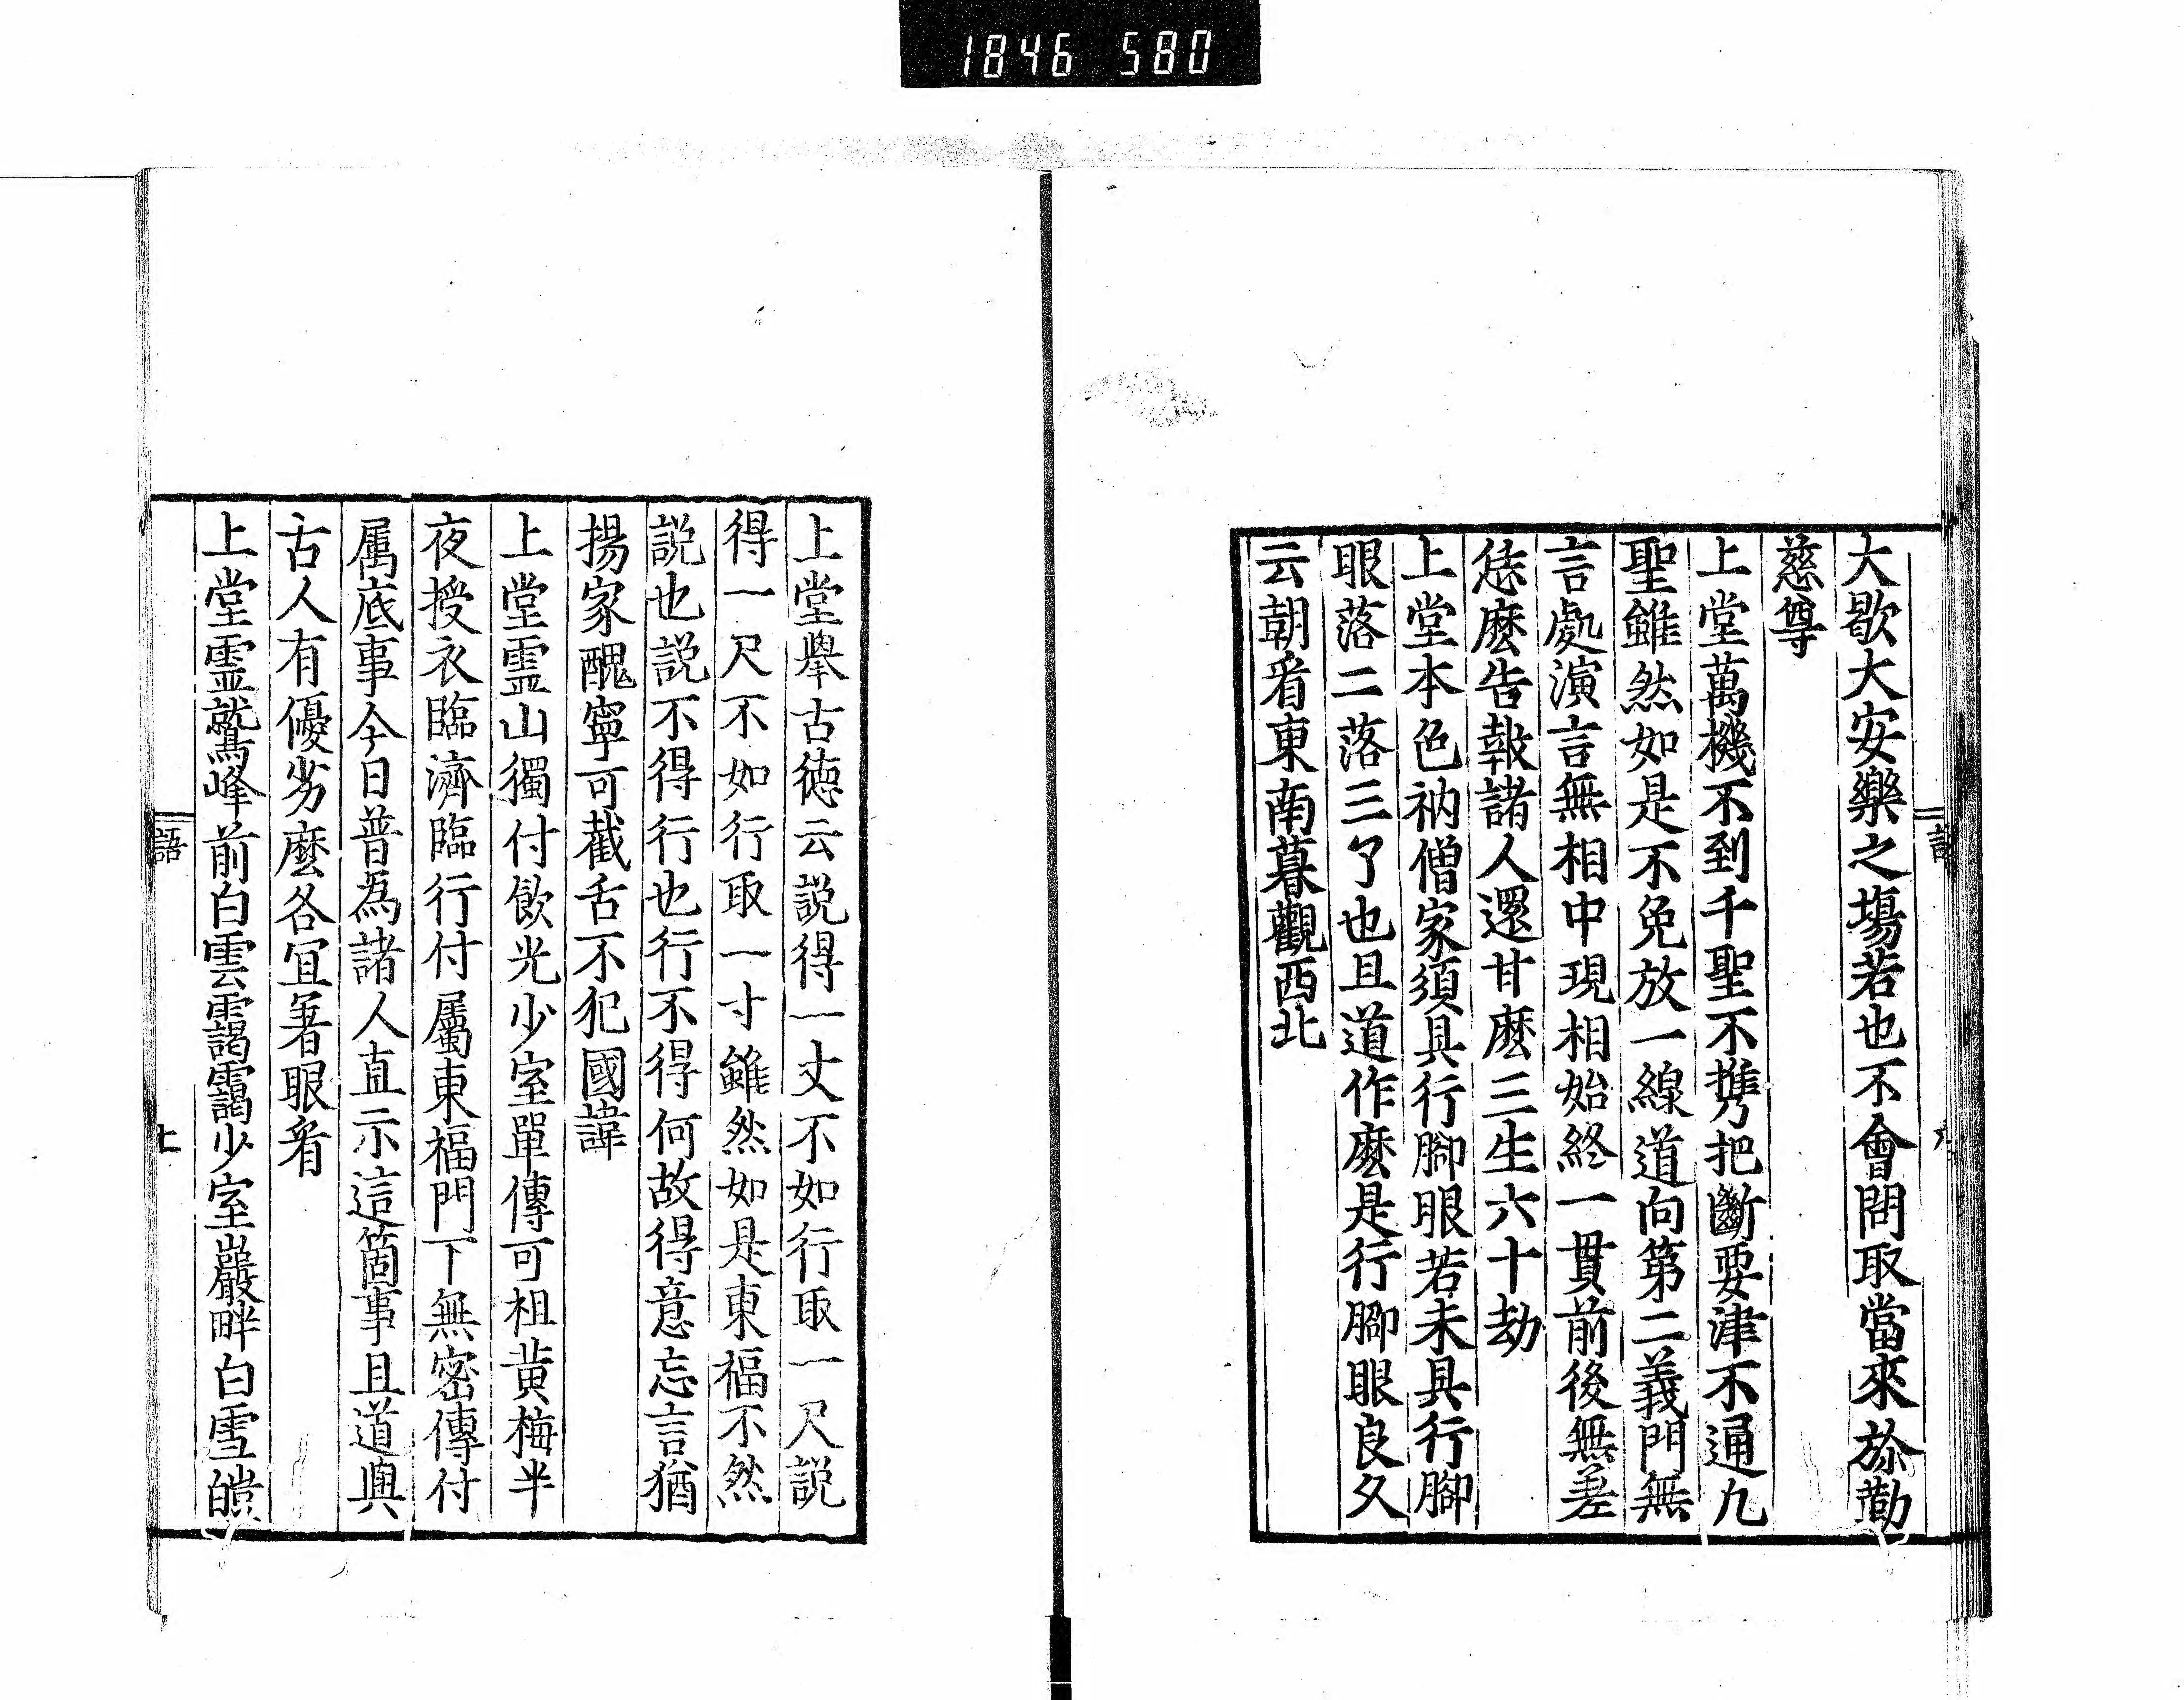 1846 580
大歇大安樂之場若也不會問取當來旅勤
慈尊
上堂萬機不到千聖不攜把斷要津不通九
聖雖然如是不免放一線道向第二義門無
言處演言無相中現相始終一貫前後無差
恁麼告報諸人還甘麼三生六十劫
上堂本色衲僧家須具行腳眼若未具行腳
眼落二落三了也且道作麼是行腳眼良久
云朝看東南暮觀西北
上堂舉古德云説得一丈不如行取一尺説
得一尺不如行取一寸雖然如是東福不然
説也説不得行也行不得何故得意忘言猶
揚家醜寧可截舌不犯國諱
上堂霊山獨付飲光少室單傳可祖黄梅半
夜授衣臨濟臨行付屬東福門下無密傳付
属底事今日普為諸人直示這箇事且道與
古人有優劣麼各冝著眼看
上堂霊鷲峰前白雲靄靄少室巖畔白雪皚
語 上